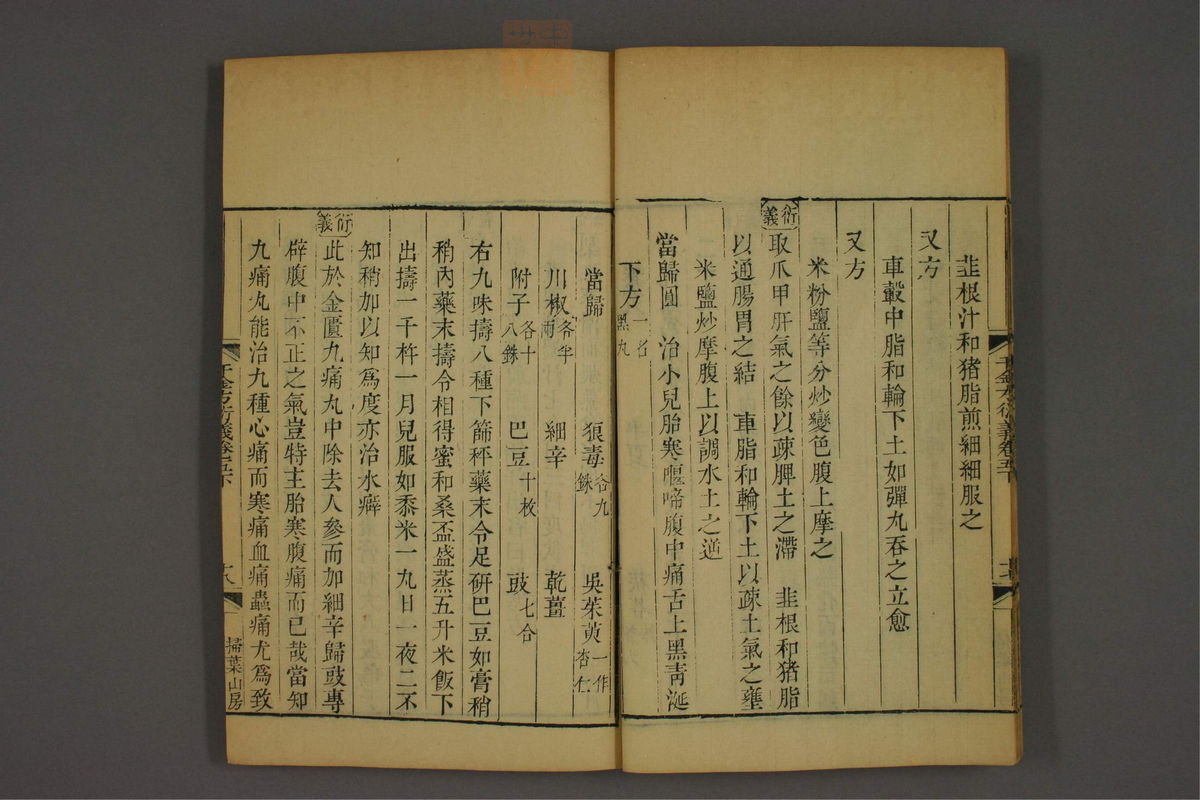 韭根汁和猪脂煎細細服之
又方
車轂中脂和輪下土如彈丸吞之立愈
又方
米粉鹽等分炒變色腹上摩之
衍義
取爪甲肝氣之餘以疎脾土之滯　韭根和猪脂
以通腸胃之結　車脂和輪下土以疎土氣之壅
米鹽炒摩腹上以調水土之逆
當歸圓　治小兒胎寒㗅啼腹中痛舌上黑青涎
下方一名黑丸
當歸　狼毒各九銖　吳茱萸一作杏仁
川椒各半兩　細辛　乾薑
附子各十八銖　巴豆十枚　豉七合
右九味擣八種下篩秤藥末令足研巴豆如膏稍
稍內藥末擣令相得蜜和桑盃盛蒸五升米飯下
出擣一千杵一月兒服如黍米一丸日一夜二不
知稍加以知爲度亦治水癖
衍義
此於金匱九痛丸中除去人參而加細辛歸豉專
辟腹中不正之氣豈特主胎寒腹痛而已哉當知
九痛丸能治九種心痛而寒痛血痛蟲痛尤爲致
千金方衍義卷五下
十八
掃葉山房